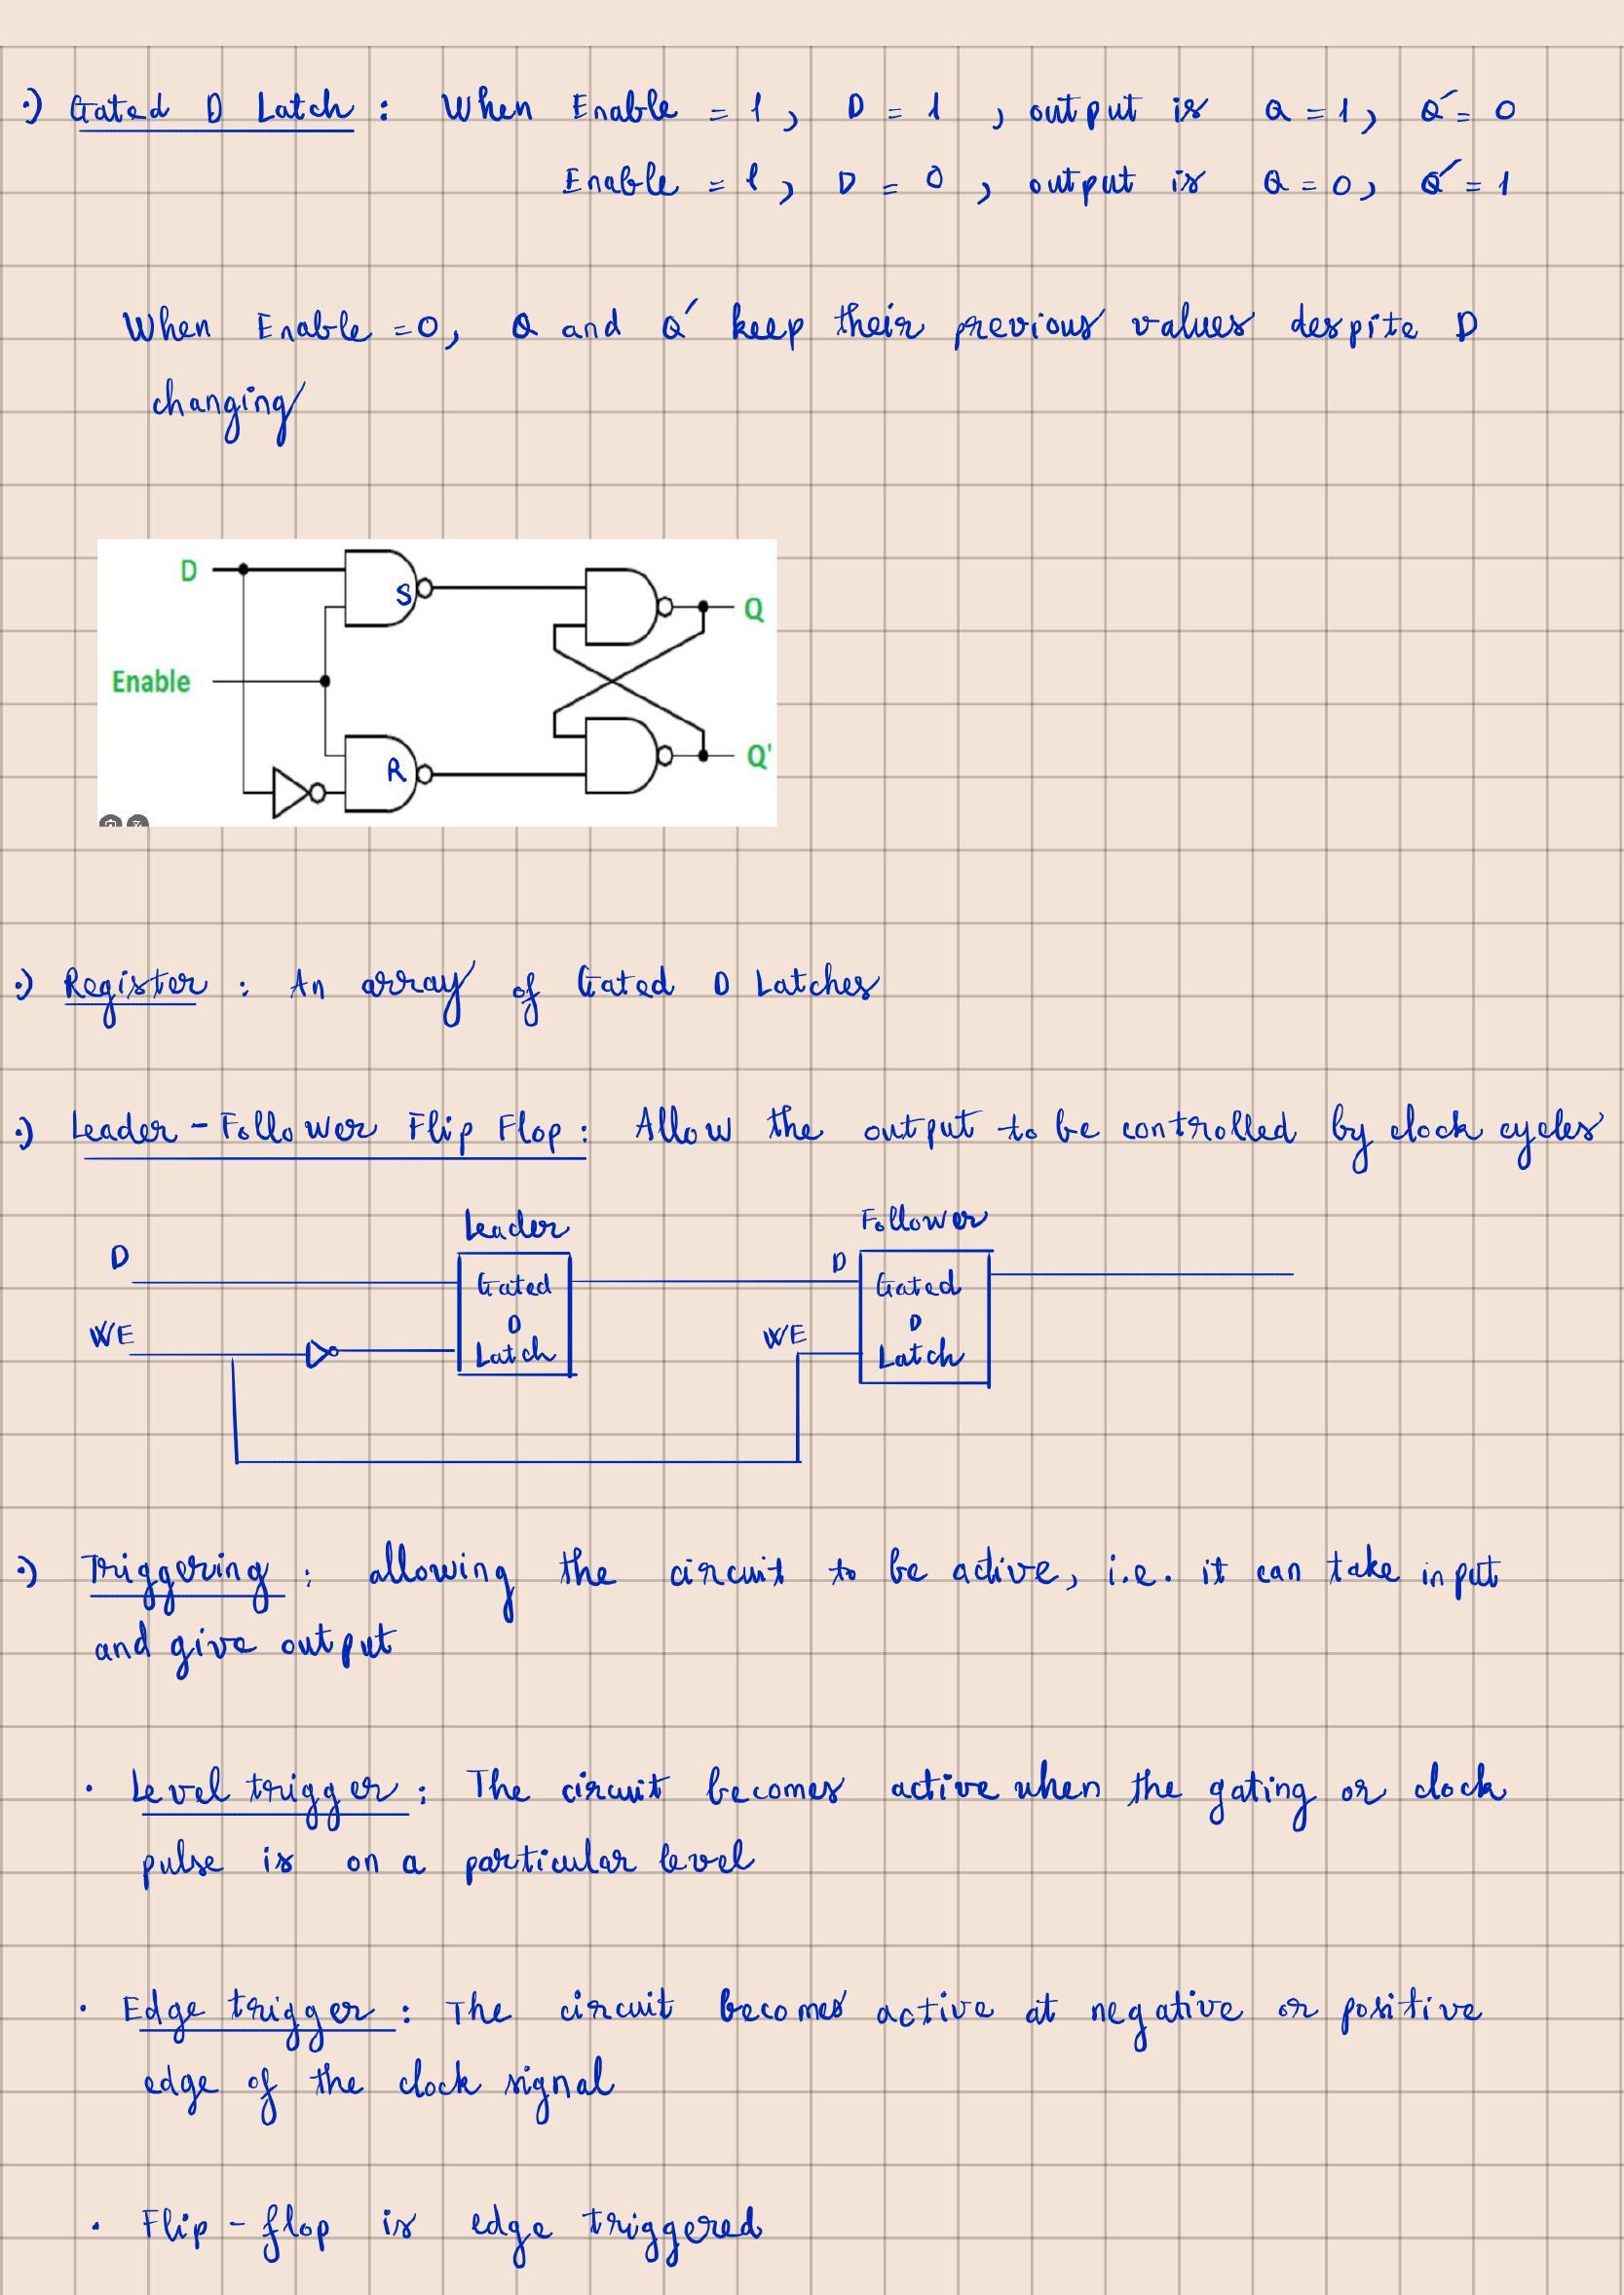 ·) Gated D Latch : When Enable = 1, D = 1, output is Q = 1, Q' = 0
Enable = 1, D = 0, output is Q = 0, Q' = 1
When Enable = 0, Q and Q' keep their previous values despite D
changing
D
S
Q
Enable
R
Q'
·) Register : An array of Gated D Latches
·) Leader - Follower Flip Flop : Allow the output to be controlled by clock cycles
Leader
Follower
D
D
Gated
D
Latch
Gated
D
Latch
WE
WE
·) Triggering : allowing the circuit to be active, i.e. it can take input
and give output
· Level trigger : The circuit becomes active when the gating or clock
pulse is on a particular level
· Edge trigger : The circuit becomes active at negative or positive
edge of the clock signal
· Flip - flop is edge triggered